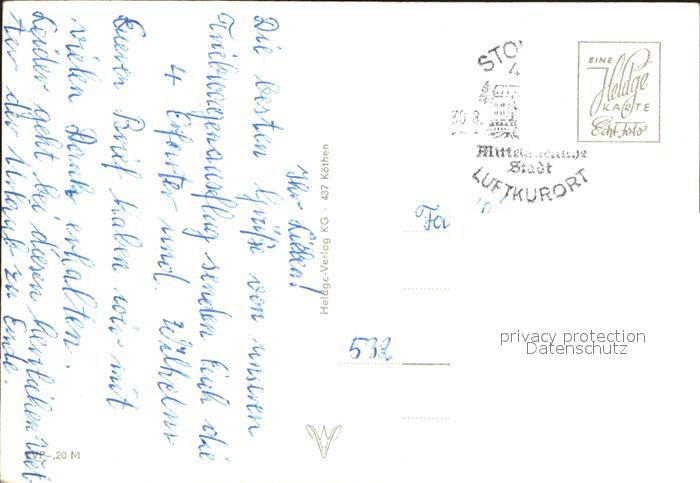 Ihr Lieben!
Die besten Grüße von unseren
Triebwagenausflug senden Euch die
4 Efenter und Wilhelms
Eueren Brief haben wir mit
vielen Dank erhalten.
Leider geht bei diesen herrlichen Wet-
ter der Urlaub zu Ende.
Heldge-Verlag KG · 437 Köthen
EVP -,20 M
STO
4
30.8.
Mittelalterliche
Stadt
LUFTKURORT
EINE
Heldge
KARTE
Echt Foto
Fa
532
privacy protection
Datenschutz